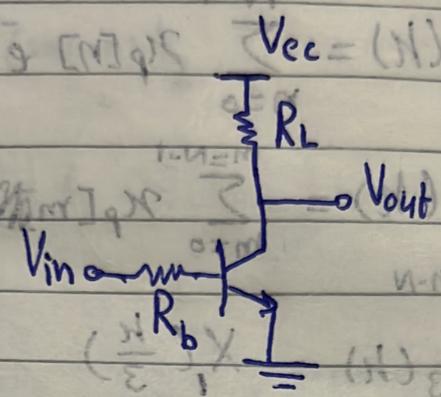 Vcc
RL
Vout
Vin
Rb